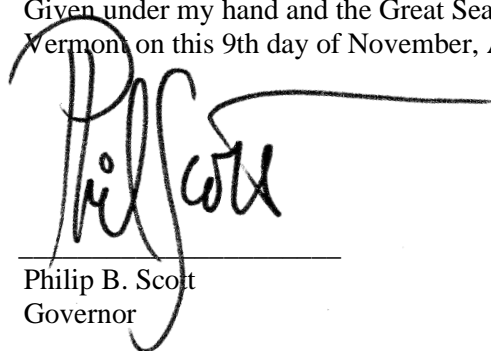 Given under my hand and the Great Sea
Vermont on this 9th day of November, A
Phil Scott
Philip B. Scott
Governor